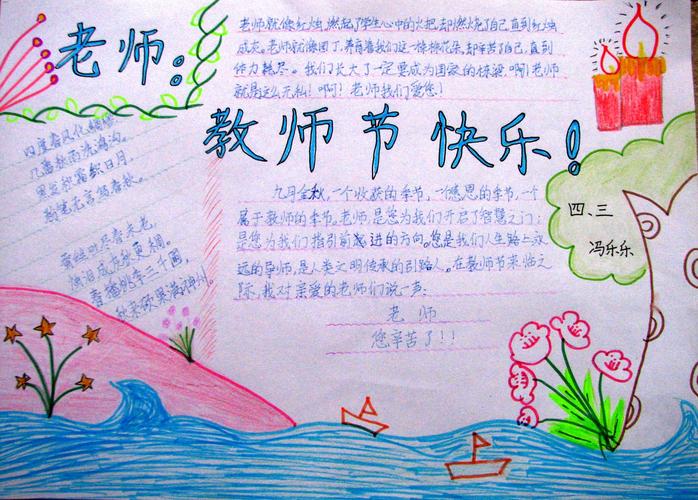 老师:
老师就像红烛,燃起了学生心中的火把,却燃烧了自己直到红烛
成灰。老师就像园丁,养育着我们这一棵棵花朵,却辛苦了自己,直到
体力耗尽。我们长大了一定要成为国家的栋梁。啊!老师
就是这么无私!啊!老师我们爱您!
教师节快乐!
四度春风化绸缪,
几番秋雨洗鸿沟。
黑发积霜织日月,
粉笔无言写春秋。
蚕丝吐尽春未老,
烛泪成灰秋更稠。
春播桃李三千圃,
秋来硕果满神州。
九月金秋,一个收获的季节,一个感恩的季节,一个
属于教师的季节。老师,是您为我们开启了智慧之门;
是您为我们指引前进的方向。您是我们人生路上永
远的导师,是人类文明传承的引路人。在教师节来临之
际,我对亲爱的老师们说一声:
老师
您辛苦了!!
四、三
冯乐乐